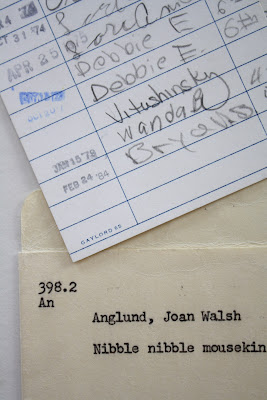 OCT 31 '74
APR 25
Debbie E
Debbie E.
Vitushinsky
Wanda B
JAN 15 '79
FEB 24 '84
GAYLORD 65
398.2
An
Anglund, Joan Walsh
Nibble nibble mousekin